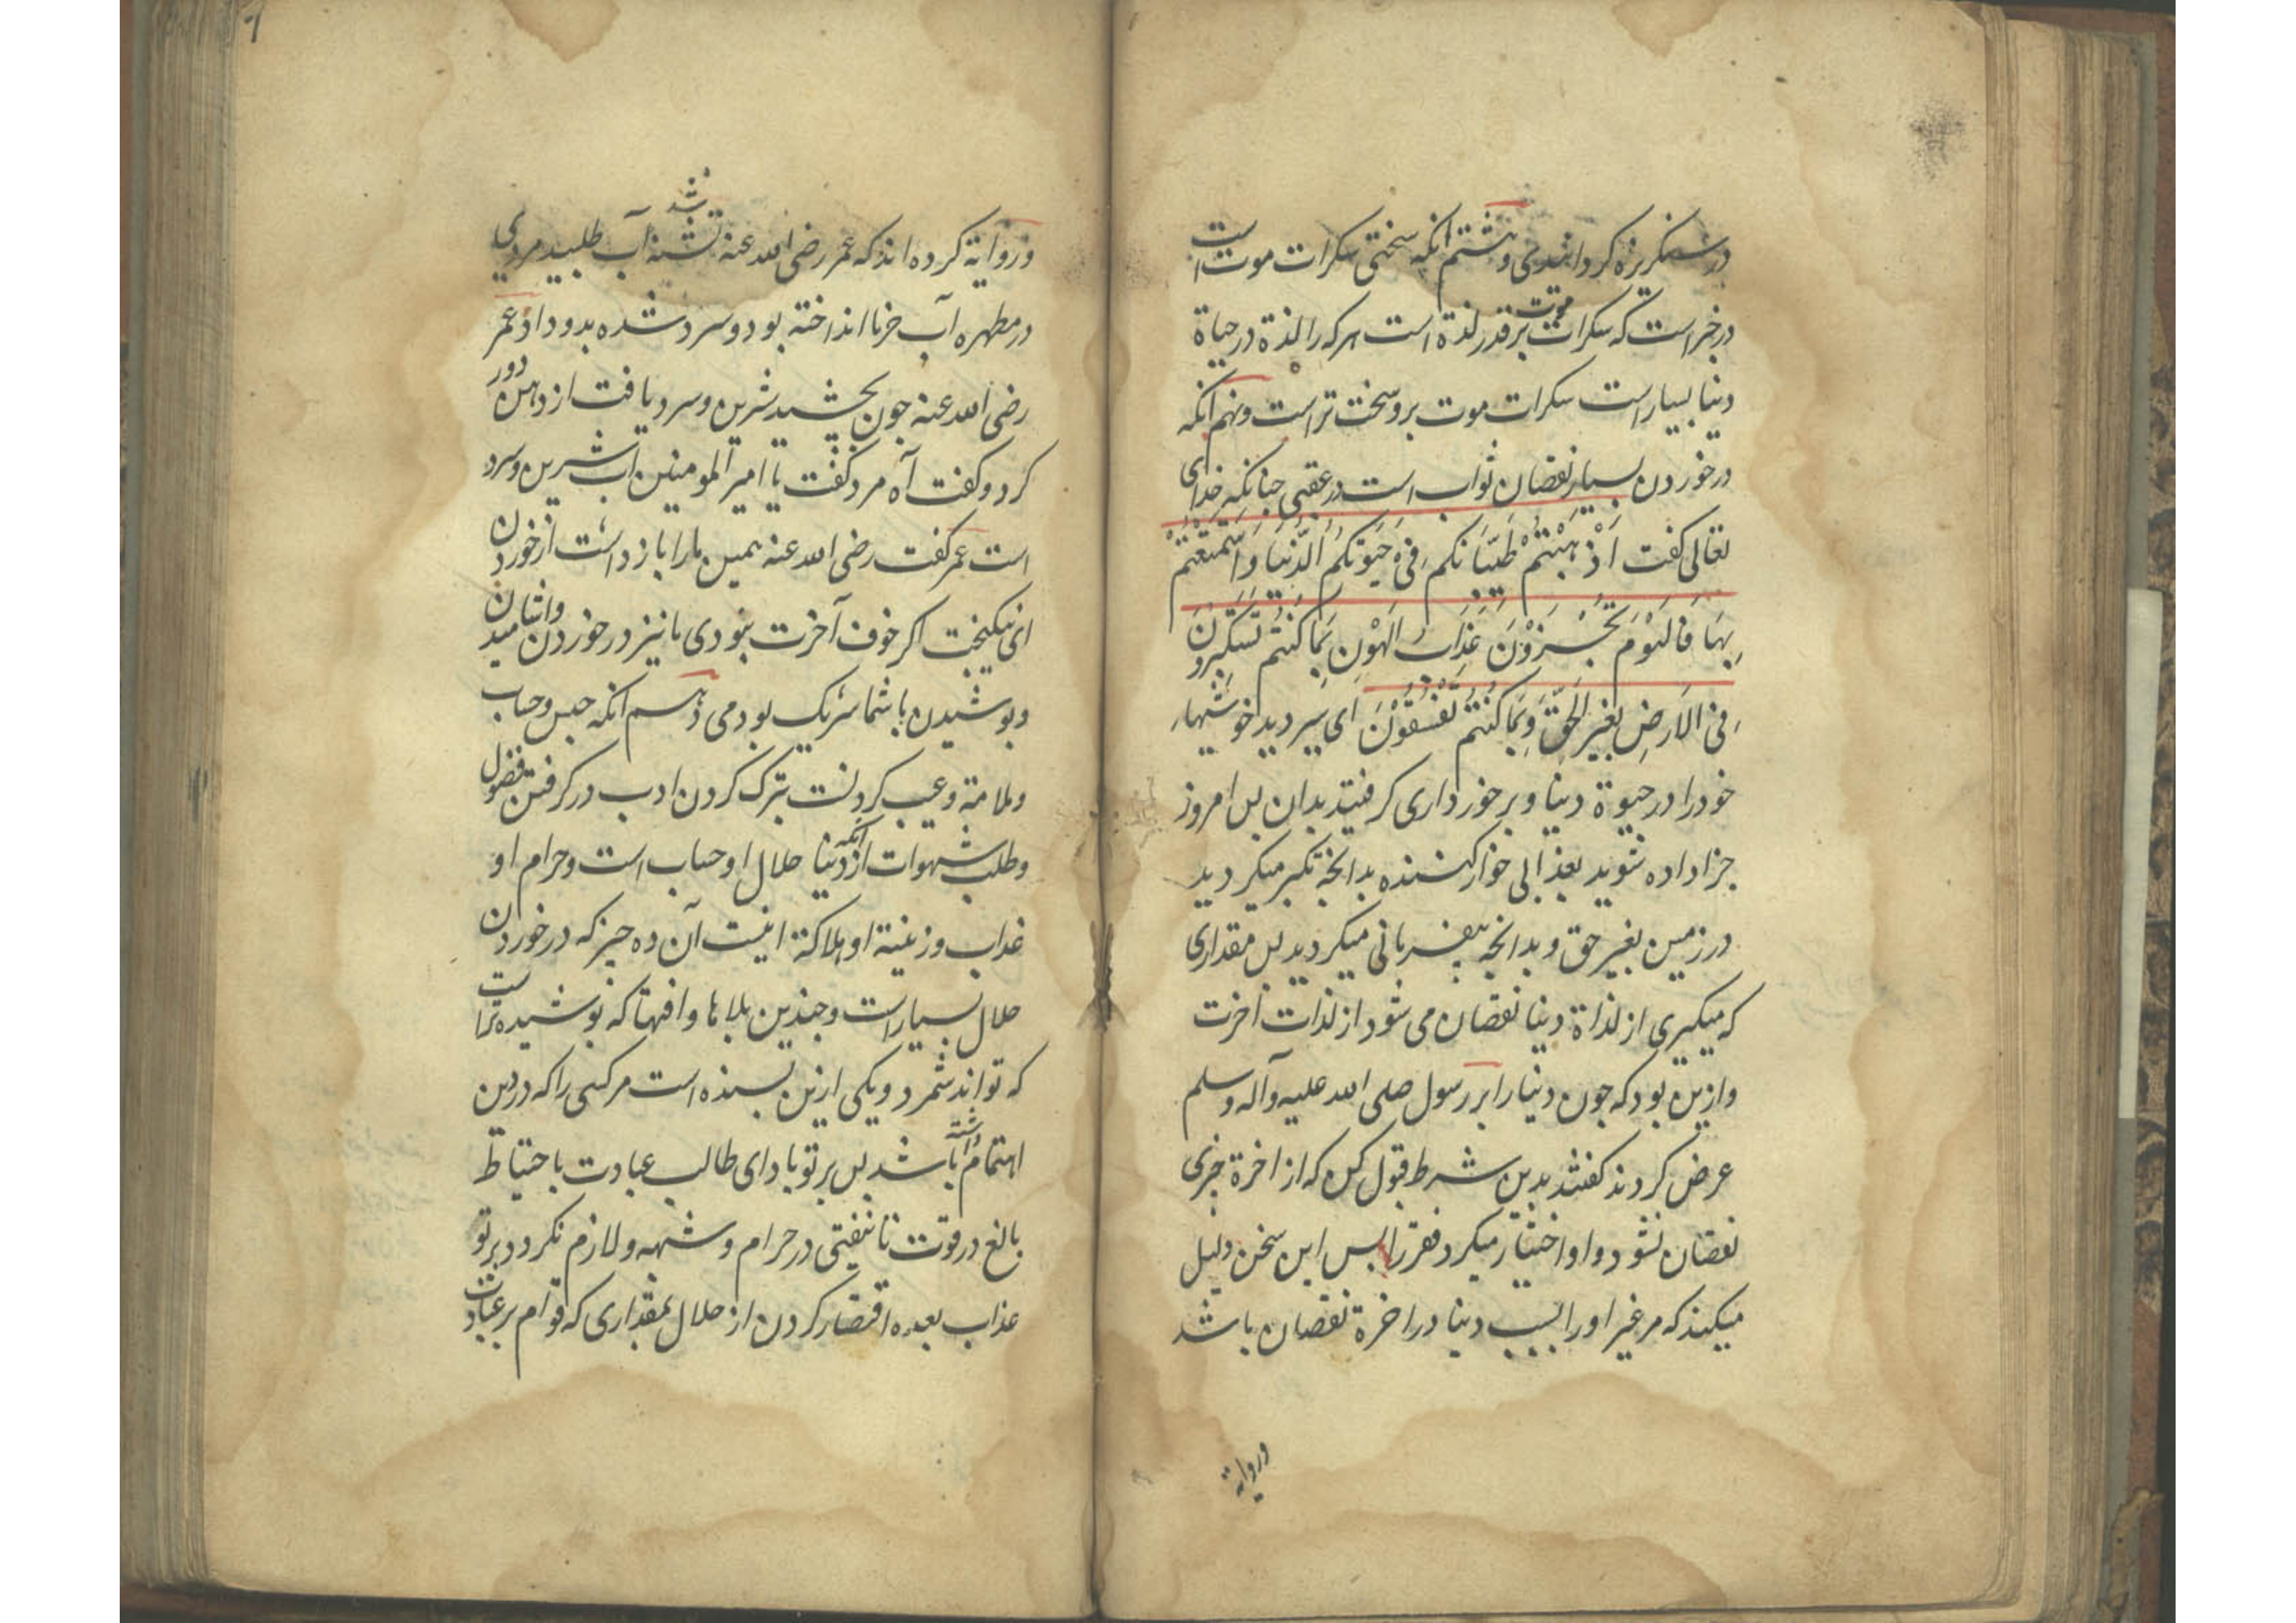 در سنگریزه گردانیدی و هشتم انکه سختی سکرات موت است
در خبر است که سکرات موت بر قدر لذة است هر که را لذة در حیاة
دنیا بسیار است سکرات موت برو سخت تر است و نهم انکه
در خوردن بسیار نقصان ثواب است در عقبی جنانکه خدای
تعالی کفت اَذْهَبْتُمْ طَیِّبَاتِکُم فِیْ حَیٰوتِکُمُ الدُّنْیَا وَاسْتَمْتَعْتُمْ
بِهَا فَالْیَوْمَ تُجْزَوْنَ عَذَابَ الْهُوْنِ بِمَا کُنْتُم تَسْتَکْبِرُونَ
فِی الْاَرْضِ بِغَیْرِ الْحَقِّ وَبِمَا کُنْتُمْ تَفْسُقُوْنَ ای بردید خوشیهاء
خود را در حیوة دنیا و برخورداری کرفتید بدان بس امروز
جزا داده شوید بعذابی خوارکننده بدانجه تکبر میکردید
در زمین بغیر حق و بدانجه بیفرمانی میکردید بس مقداری
که میکیری از لذاة دنیا نقصان می شود از لذات اخرت
و ازین بود که جون دنیا را بر رسول صلی الله علیه وآله وسلم
عرض کردند کفتند بدین شرط قبول کن که از اخرة جیزی
نقصان نشود و او اختیار میکرد فقر را بس این سخن دلیل
میکند که مر غیر او را بسبب دنیا در اخرة نقصان باشد
وروایة
وروایة کرده اند که عمر رضی الله عنه تشنه شد آب طلبید مردی
در مطهره آب خرما انداخته بود و سرد شده بدو داد عمر
رضی الله عنه جون بچشید شیرین و سرد یافت از دهن دور
کرد و کفت آه مرد کفت یا امیر المومنین آب شیرین و سرد
است عمر کفت رضی الله عنه همین مارا باز داشت از خوردن
ای نیکبخت اکر خوف آخرت نبودی ما نیز در خوردن واشامیدن
و بوشیدن با شما شریک بودمی دهم انکه حبس و حساب
و ملامة و عیب کردنست بترک کردن ادب در کرفتن فضول
و طلب شهوات از انکه دنیا حلال او حساب است و حرام او
عذاب و زینة او هلاکة اینست آن ده جیز که در خوردن
حلال بسیار است و جندین بلاها و افتها که بوشیده تر است
که تواند شمرد و یکی ازین بسنده است مر کسی را که در دین
اهتمام داشته باشد بس بر تو باد ای طالب عبادت باحتیاط
بالغ در قوت تا نیفتی در حرام و شبهه و لازم نکردد بر تو
عذاب بعده اقتصار کردن از حلال بمقداری که قوام بر عبادت